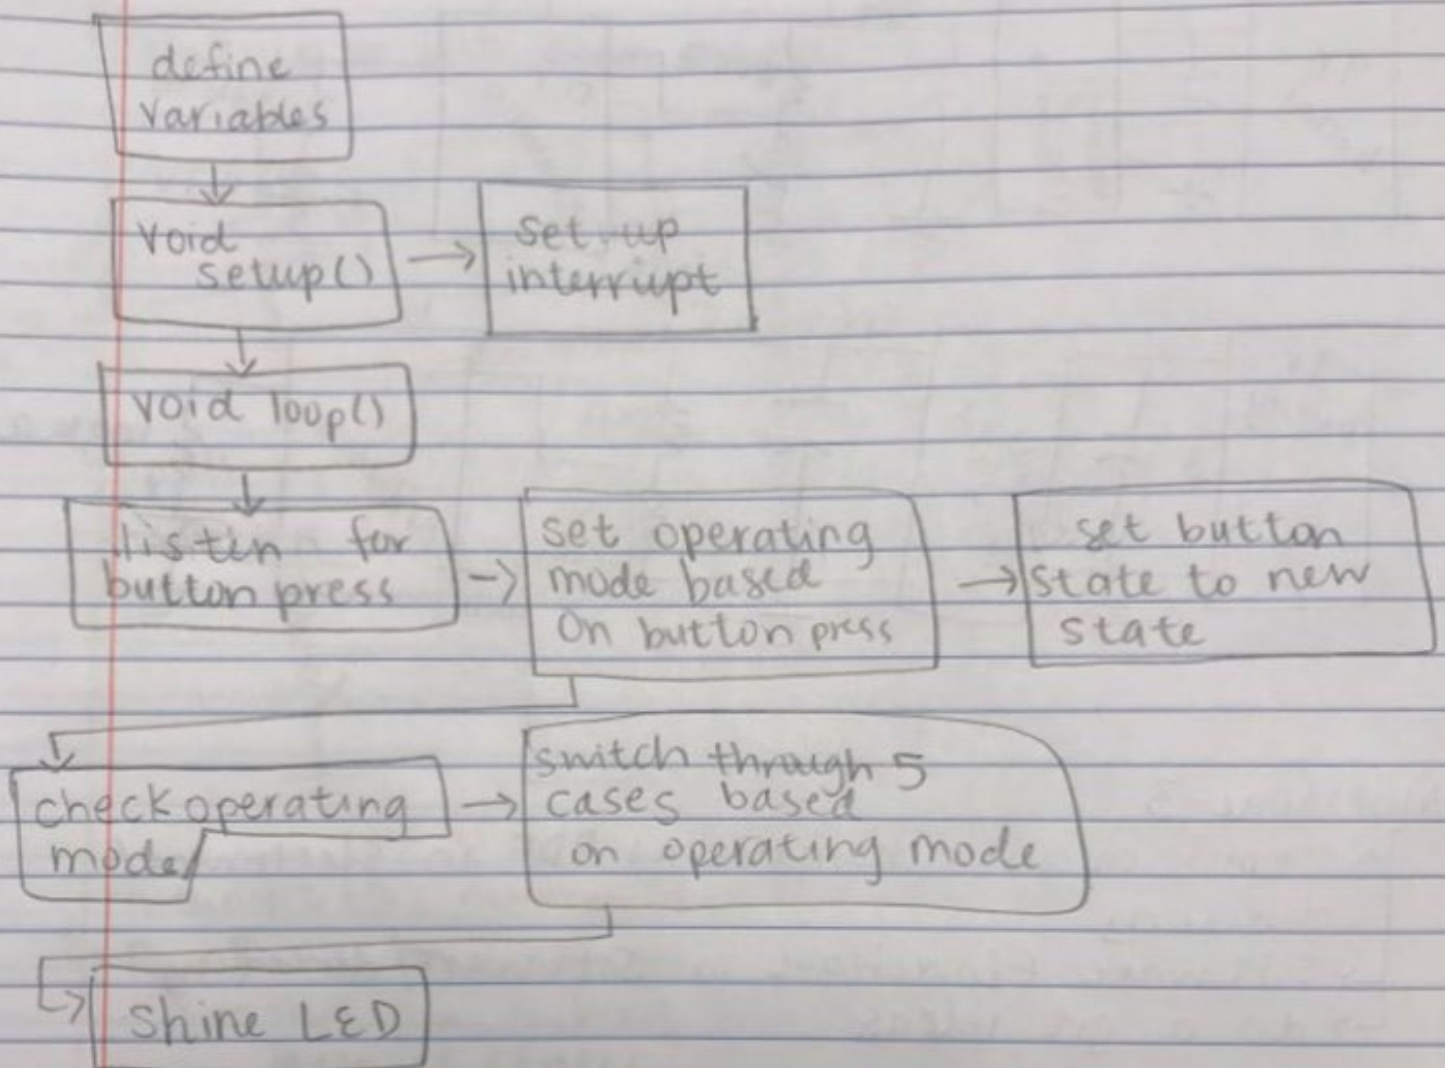 define
variables
void
setup()
set up
interrupt
void loop()
listen for
button press
set operating
mode based
on button press
set button
state to new
state
check operating
mode
switch through 5
cases based
on operating mode
Shine LED